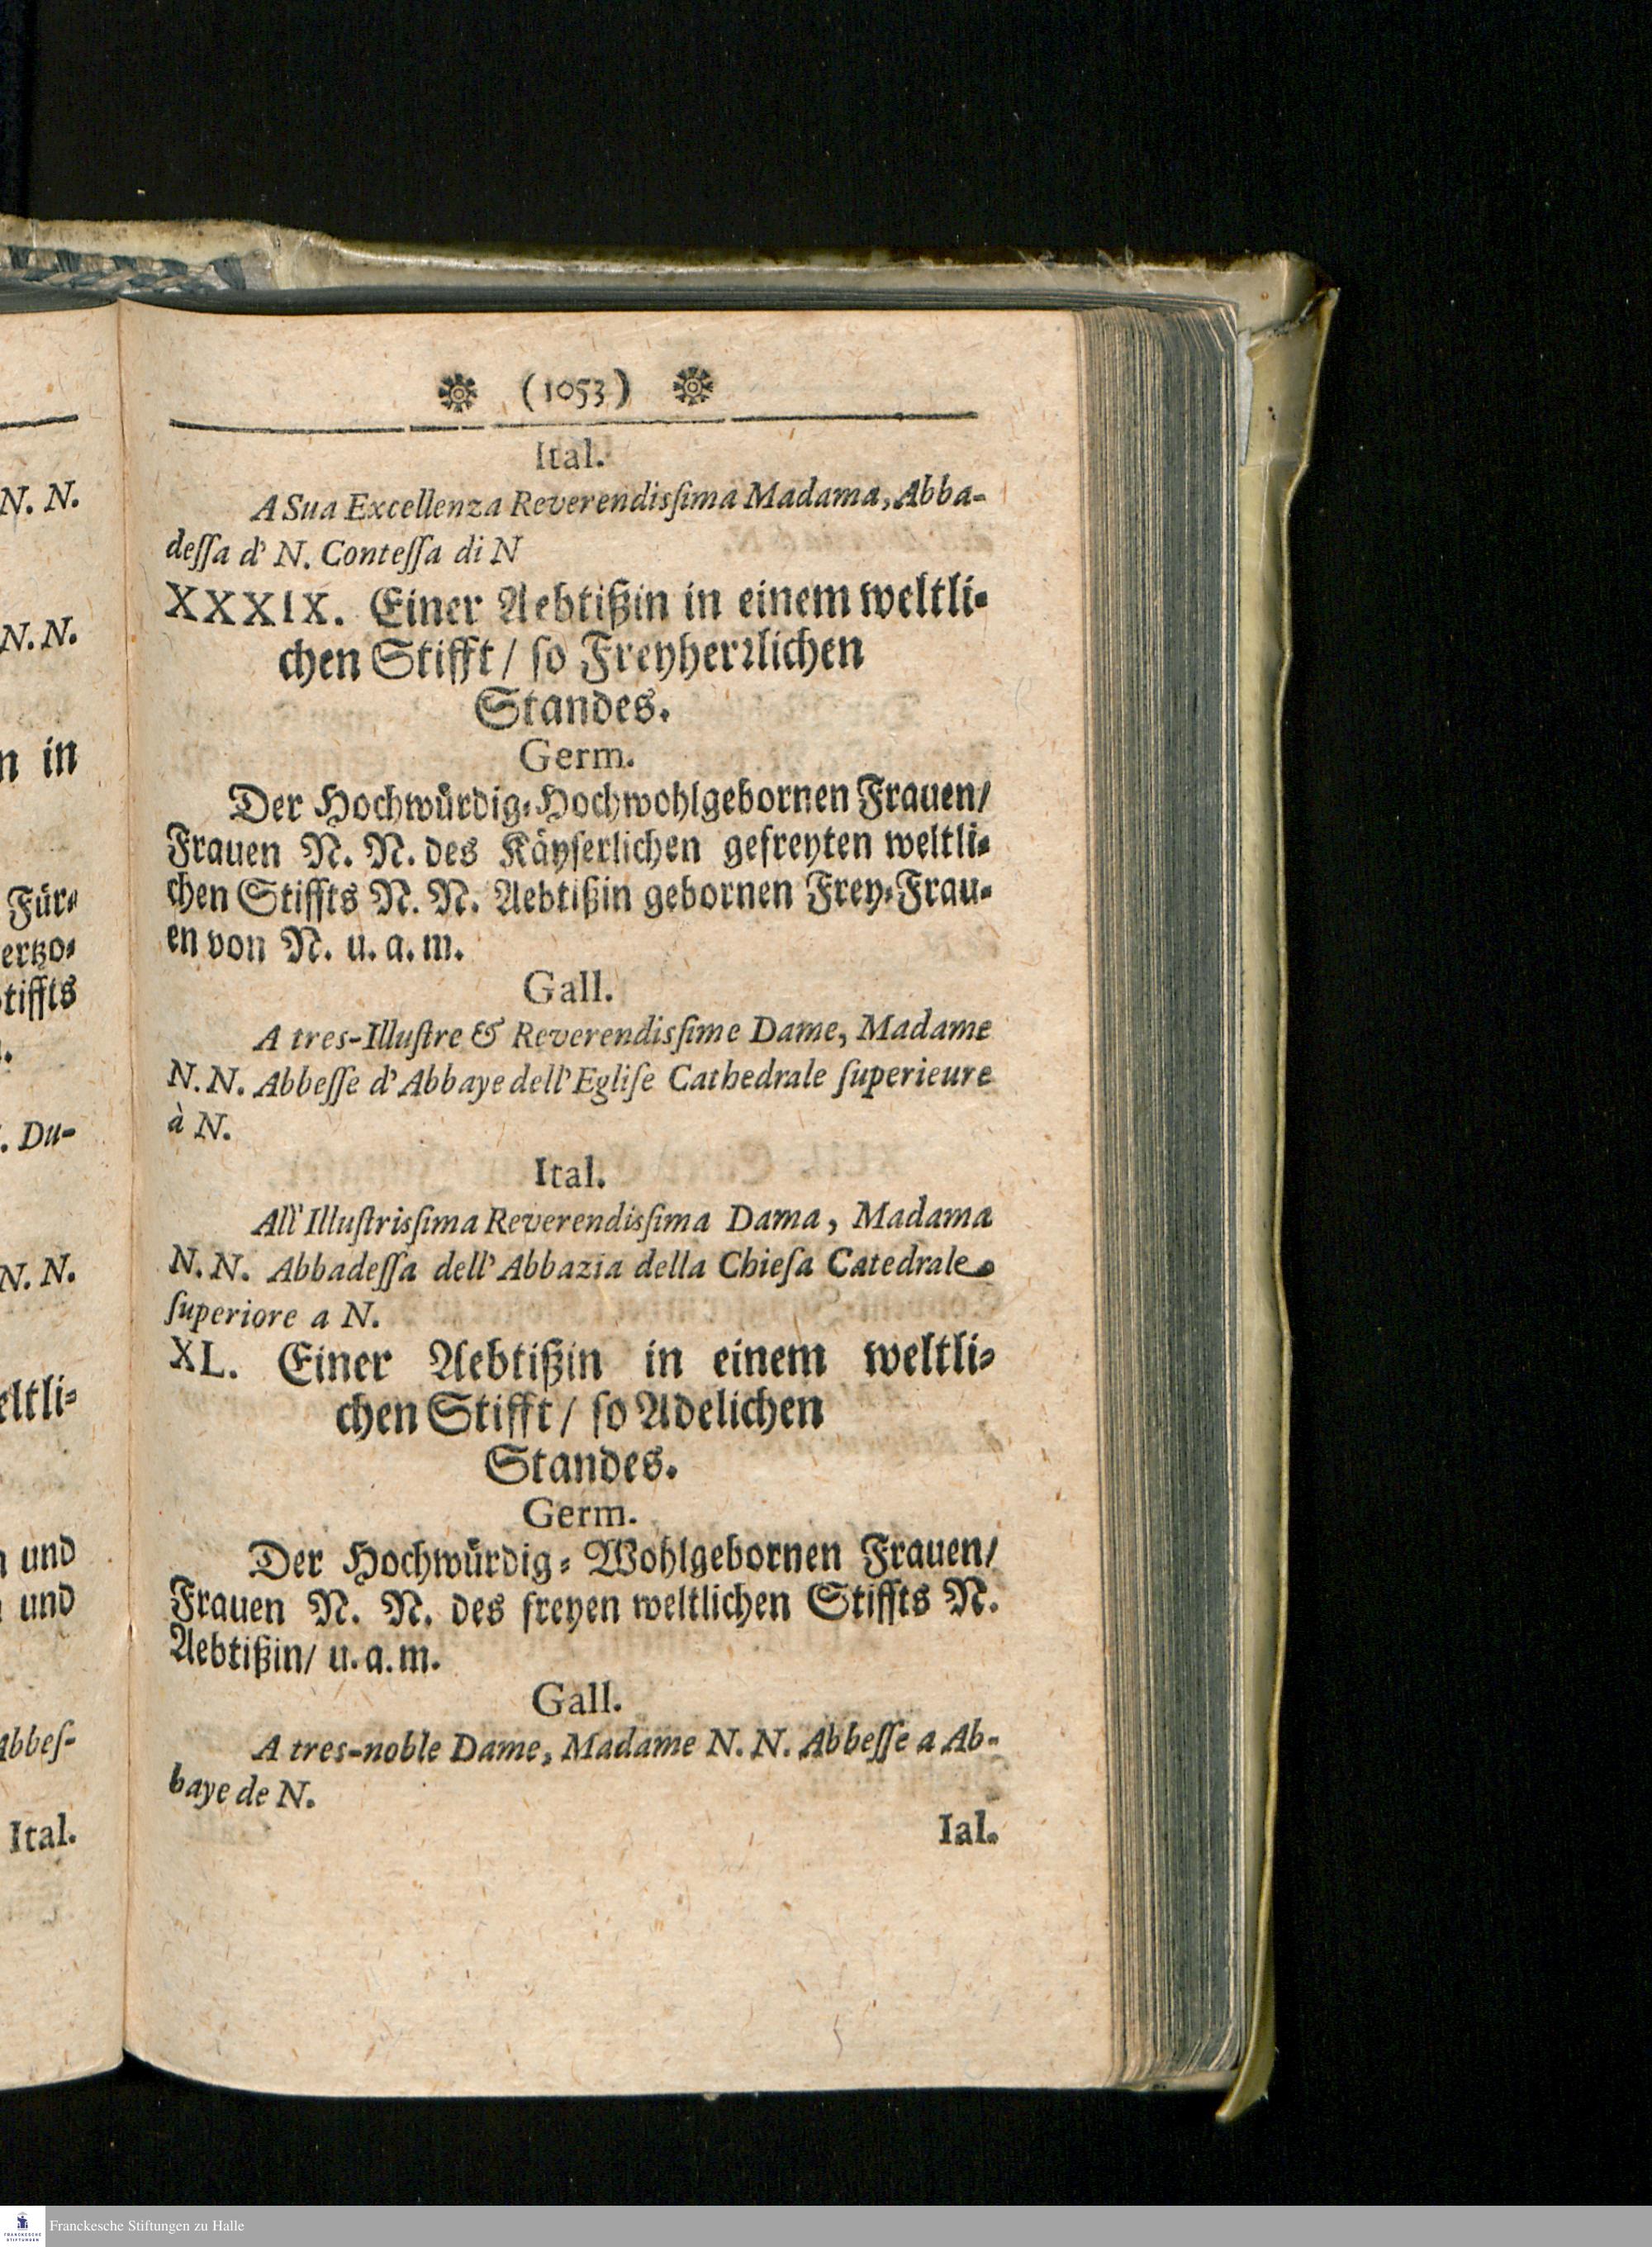 N. N.
N. N.
n in
Für⸗
ertzo⸗
tiffts
. Du-
N. N.
eltli⸗
und
und
Abbeſ-
Ital.
(1053)
Ital.
A Sua Excellenza Reverendisſima Madama, Abba-
deſſa d' N. Conteſſa di N
XXXIX. Einer Aebtißin in einem weltli⸗
chen Stifft / ſo Freyherꝛlichen
Standes.
Germ.
Der Hochwuͤrdig⸗Hochwohlgebornen Frauen/
Frauen N. N. des Kaͤyſerlichen gefreyten weltli⸗
chen Stiffts N. N. Aebtißin gebornen Frey⸗Frau⸗
en von N. u. a. m.
Gall.
A tres-Illuſtre & Reverendisſime Dame, Madame
N. N. Abbeſſe d' Abbaye dell' Egliſe Cathedrale ſuperieure
à N.
Ital.
All' Illuſtrisſima Reverendisſima Dama, Madama
N. N. Abbadeſſa dell' Abbazia della Chieſa Catedrale
ſuperiore a N.
XL. Einer Aebtißin in einem weltli⸗
chen Stifft / ſo Adelichen
Standes.
Germ.
Der Hochwuͤrdig⸗Wohlgebornen Frauen/
Frauen N. N. des freyen weltlichen Stiffts N.
Aebtißin/ u. a. m.
Gall.
A tres-noble Dame, Madame N. N. Abbeſſe a Ab-
baye de N.
Ial.
FRANCKESCHE
STIFTUNGEN
Franckesche Stiftungen zu Halle